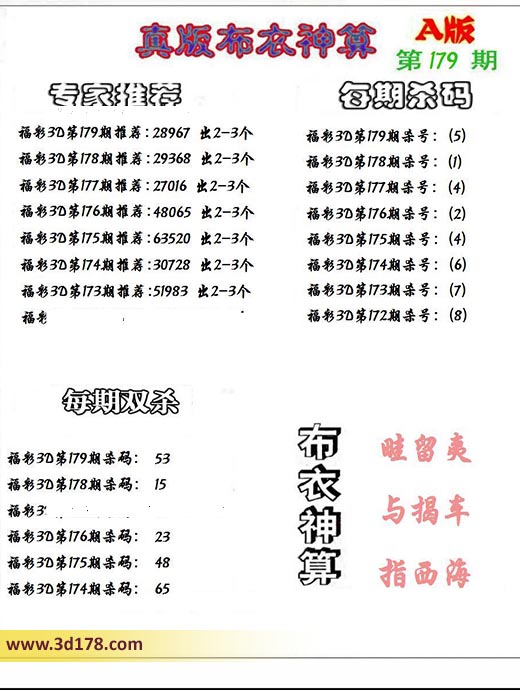 真版布衣神算
A版
第179 期
专家推荐
福彩3D第179期推荐:28967 出2-3个
福彩3D第178期推荐:29368 出2-3个
福彩3D第177期推荐:27016 出2-3个
福彩3D第176期推荐:48065 出2-3个
福彩3D第175期推荐:63520 出2-3个
福彩3D第174期推荐:30728 出2-3个
福彩3D第173期推荐:51983 出2-3个
福彩
每期杀码
福彩3D第179期杀号: (5)
福彩3D第178期杀号: (1)
福彩3D第177期杀号: (4)
福彩3D第176期杀号: (2)
福彩3D第175期杀号: (4)
福彩3D第174期杀号: (6)
福彩3D第173期杀号: (7)
福彩3D第172期杀号: (8)
每期双杀
福彩3D第179期杀码: 53
福彩3D第178期杀码: 15
福彩3
福彩3D第176期杀码: 23
福彩3D第175期杀码: 48
福彩3D第174期杀码: 65
布衣神算
畦留夷
与揭车
指西海
www.3d178.com